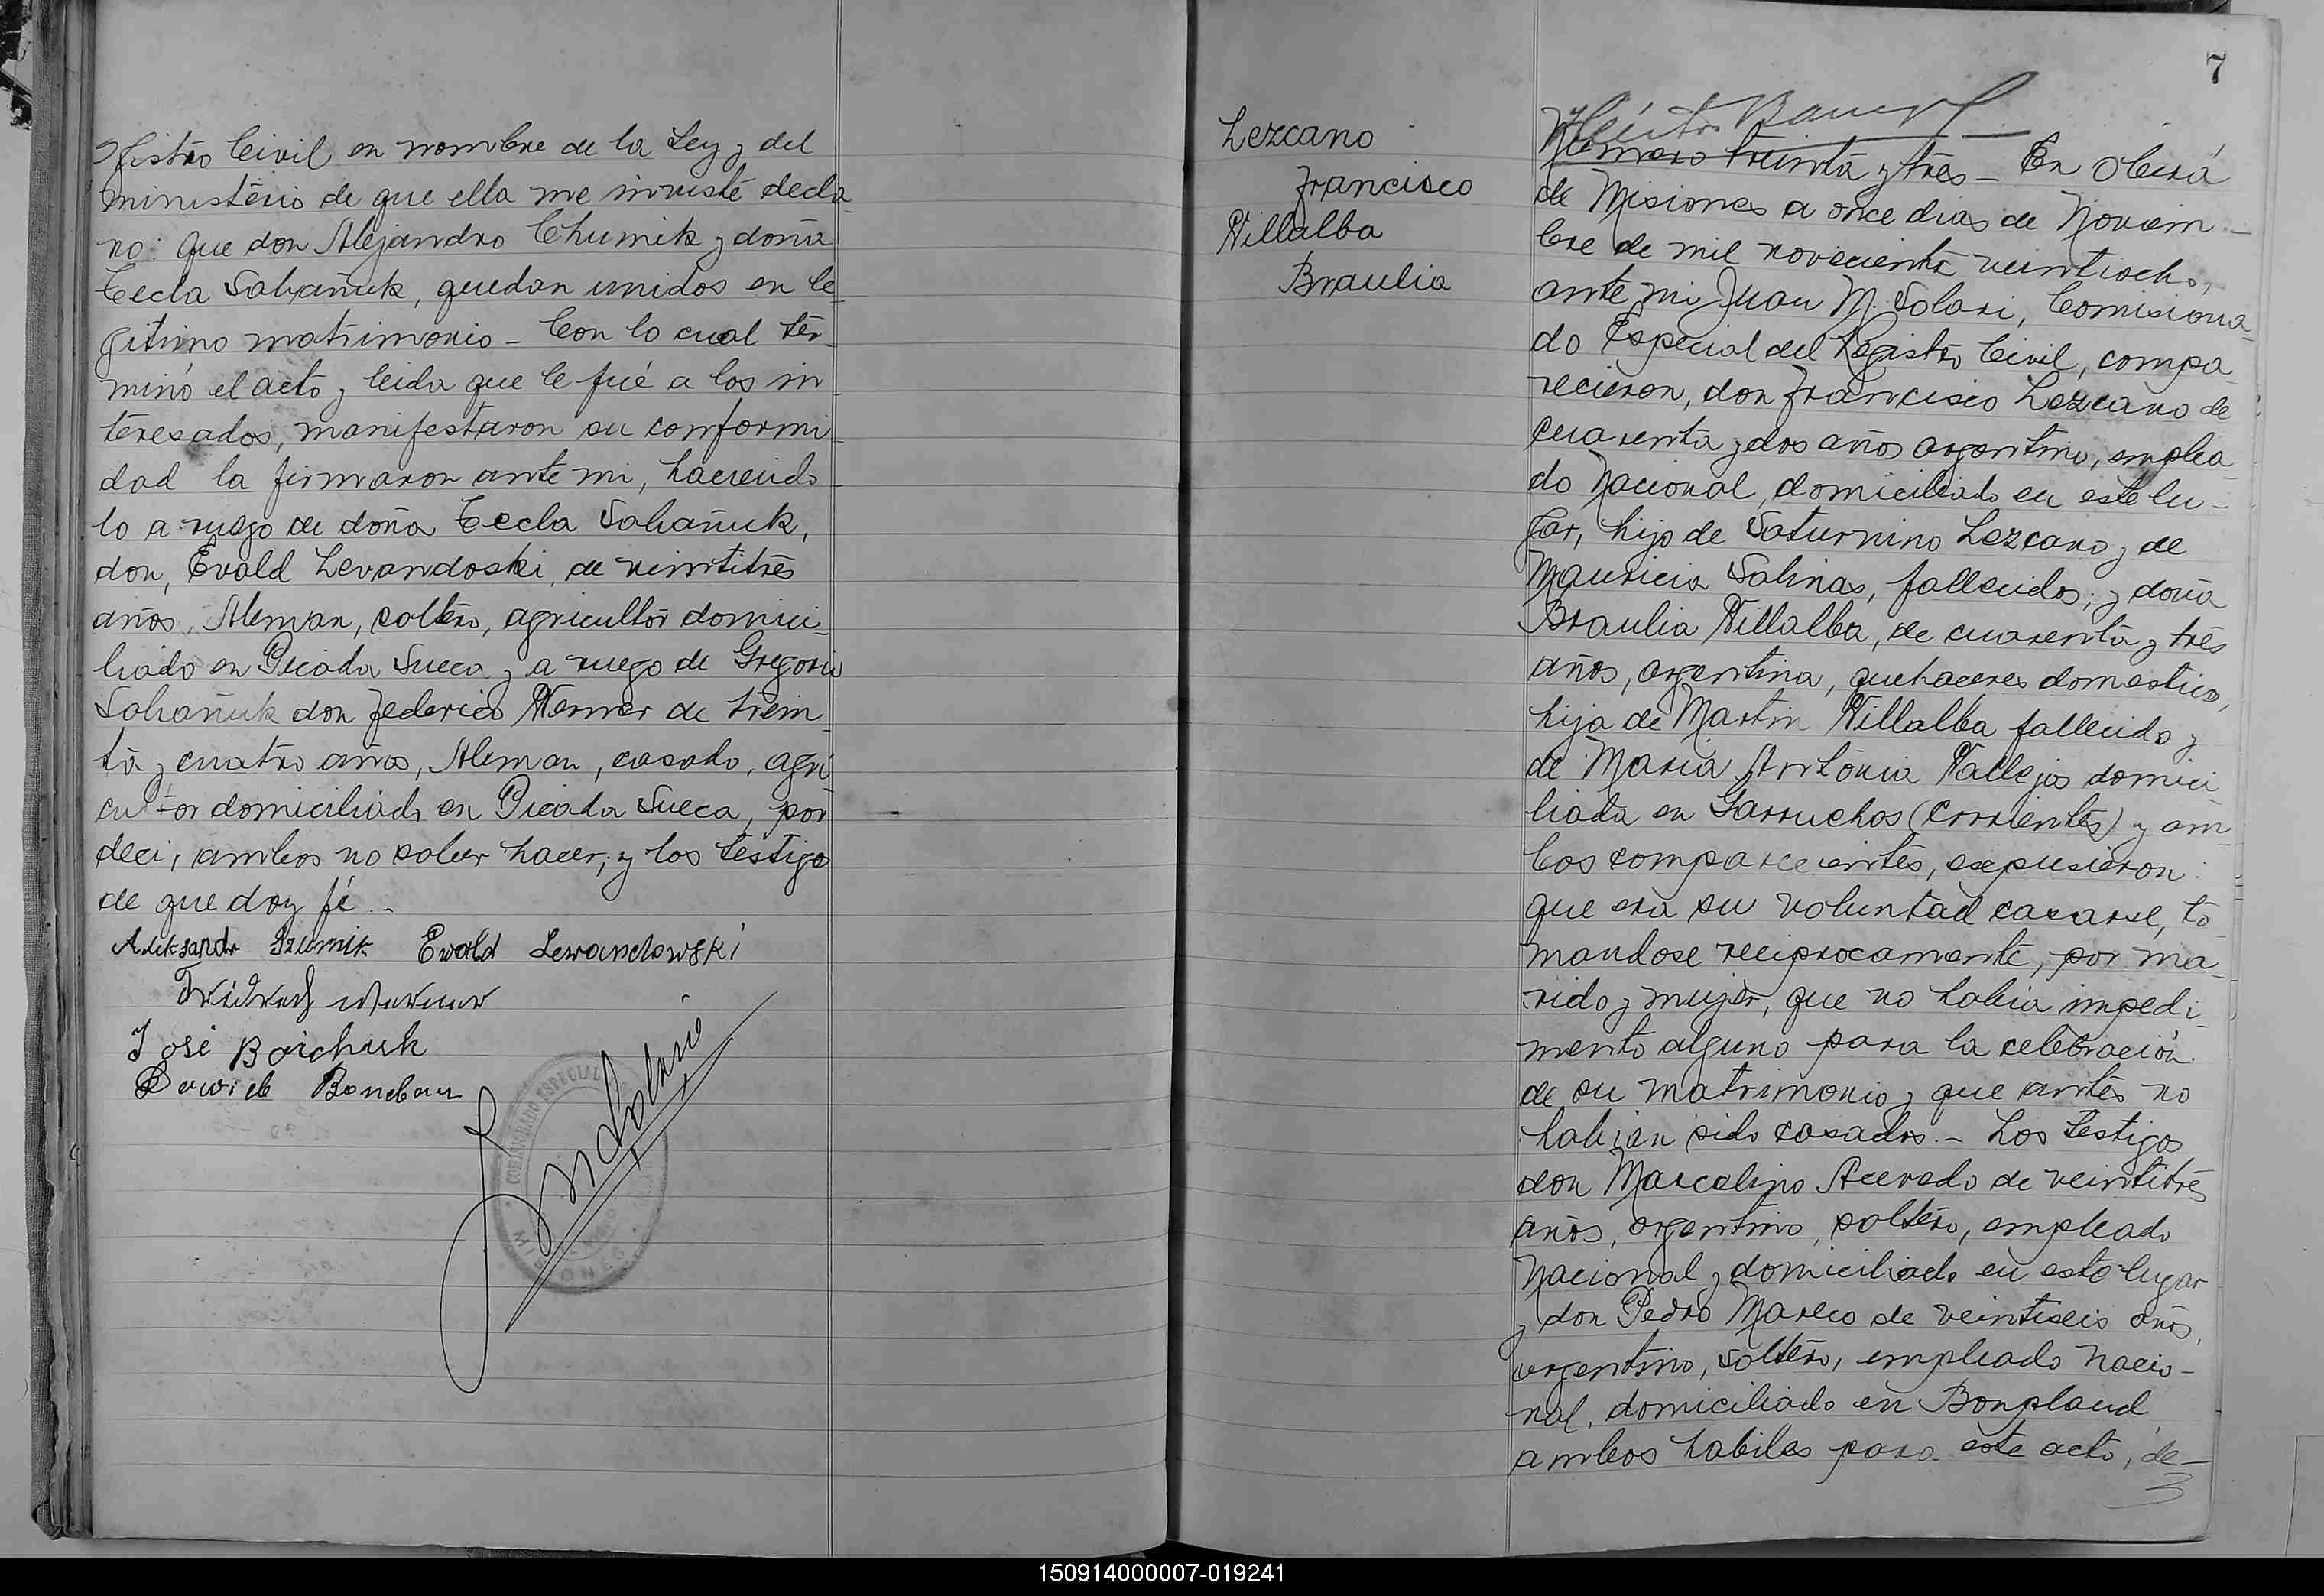 gistro Civil en nombre de la Ley y del
ministerio de que ella me inviste decla
ro: Que don Alejandro Chumik y doña
Tecla Sahañuk, quedan unidos en le
gitimo matrimonio - Con lo cual ter-
minó el acto y leida que le fué a los in
teresados, manifestaron su conformi
dad la firmaron ante mi, haciendo
lo a ruego de doña Tecla Sahañuk,
don, Evald Levandoski, de veintitres
años, Aleman, soltero, agricultor domici
liado en Picada Sueca y a ruego de Gregorio
Sahañuk don Federico Werner de trein
ta y cuatro años, Aleman, casado, agri
cultor domiciliado en Picada Sueca, por
decir ambos no saber hacer; y los testigo
de que doy fé. -
Aleksandr Szumik Ewald Lewandowski
José Boichuk
Lezcano
Francisco
Villalba
Braulia
7
Número treinta y tres - En Oberá
de Misiones a once dias de Noviem-
bre de mil novecientos veintiocho,
ante mi Juan M. Solari, Comisiona
do Especial del Registro Civil, compa
recieron, don Francisco Lezcano de
cuarenta y dos años argentino, emplea
do Nacional, domiciliado en este lu-
gar, hijo de Saturnino Lezcano y de
Mauricia Salinas, fallecidos; y doña
Braulia Villalba, de cuarenta y tres
años, argentina, quehaceres domesticos,
hija de Martin Villalba fallecido y
de Maria Antonia Vallejos domici
liada en Garruchos (Corrientes) y am
bos comparecientes, expusieron:
que era su voluntad casarse, to
mandose reciprocamente, por ma-
rido y mujer, que no habia impedi-
mento alguno para la celebración
de su matrimonio y que antes no
habian sido casados. - Los testigos
don Marcelino Acevedo de veintitres
años, argentino, soltero, empleado
Nacional y domiciliado en este lugar
y don Pedro Mareco de veintiseis años,
argentino, soltero, empleado nacio-
nal, domiciliado en Bonpland,
ambos habiles para este acto, de-
150914000007-019241